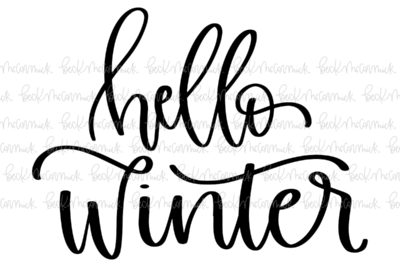 hello
winter